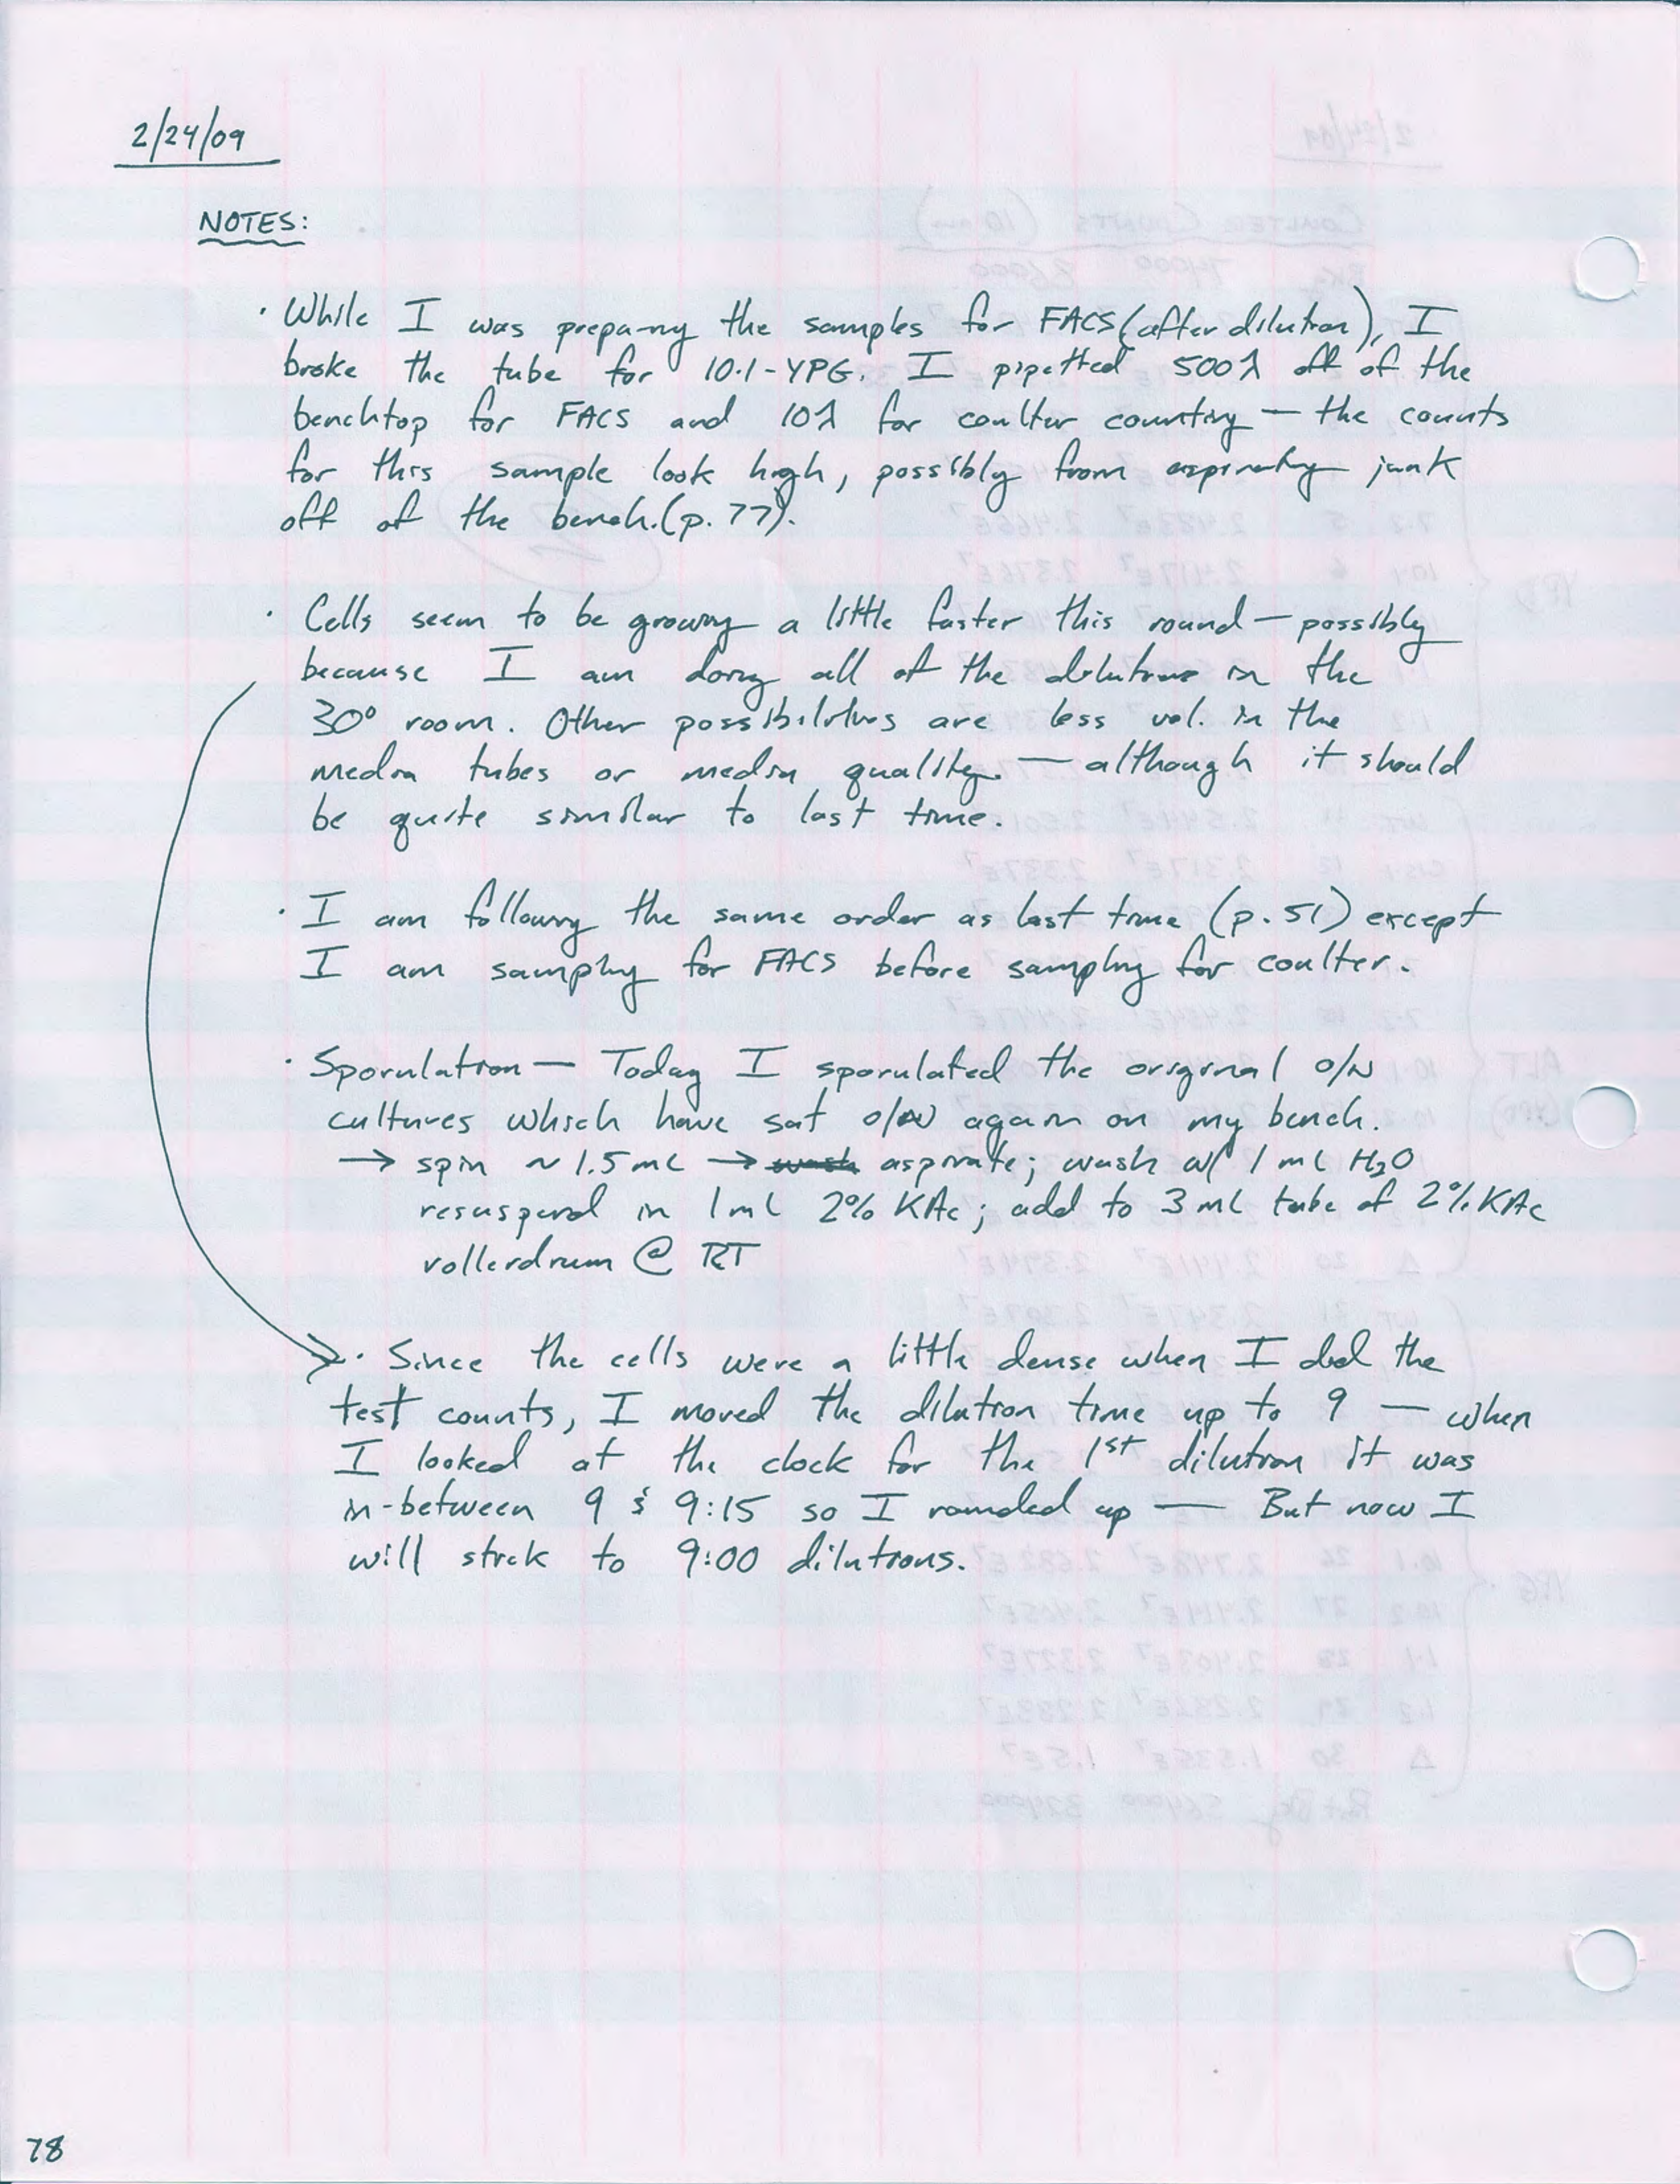 2/24/09
NOTES:
· While I was preparing the samples for FACS (after dilution), I
broke the tube for 10.1-YPG. I pipetted 500λ off of the
benchtop for FACS and 10λ for coulter counting — the counts
for this sample look high, possibly from aspirating junk
off of the bench. (p. 77).
· Cells seem to be growing a little faster this round — possibly
because I am doing all of the dilutions in the
30° room. Other possibilities are less vol. in the
media tubes or media quality — although it should
be quite similar to last time.
· I am following the same order as last time (p. 51) except
I am sampling for FACS before sampling for coulter.
· Sporulation — Today I sporulated the original o/N
cultures which have sat o/N again on my bench.
→ spin ~1.5 mL → wash aspirate; wash w/ 1 mL H₂O
resuspend in 1 mL 2% KAc; add to 3 mL tube of 2% KAc
rollerdrum @ RT
· Since the cells were a little dense when I did the
test counts, I moved the dilution time up to 9 — when
I looked at the clock for the 1st dilution it was
in-between 9 & 9:15 so I rounded up — But now I
will stick to 9:00 dilutions.
78